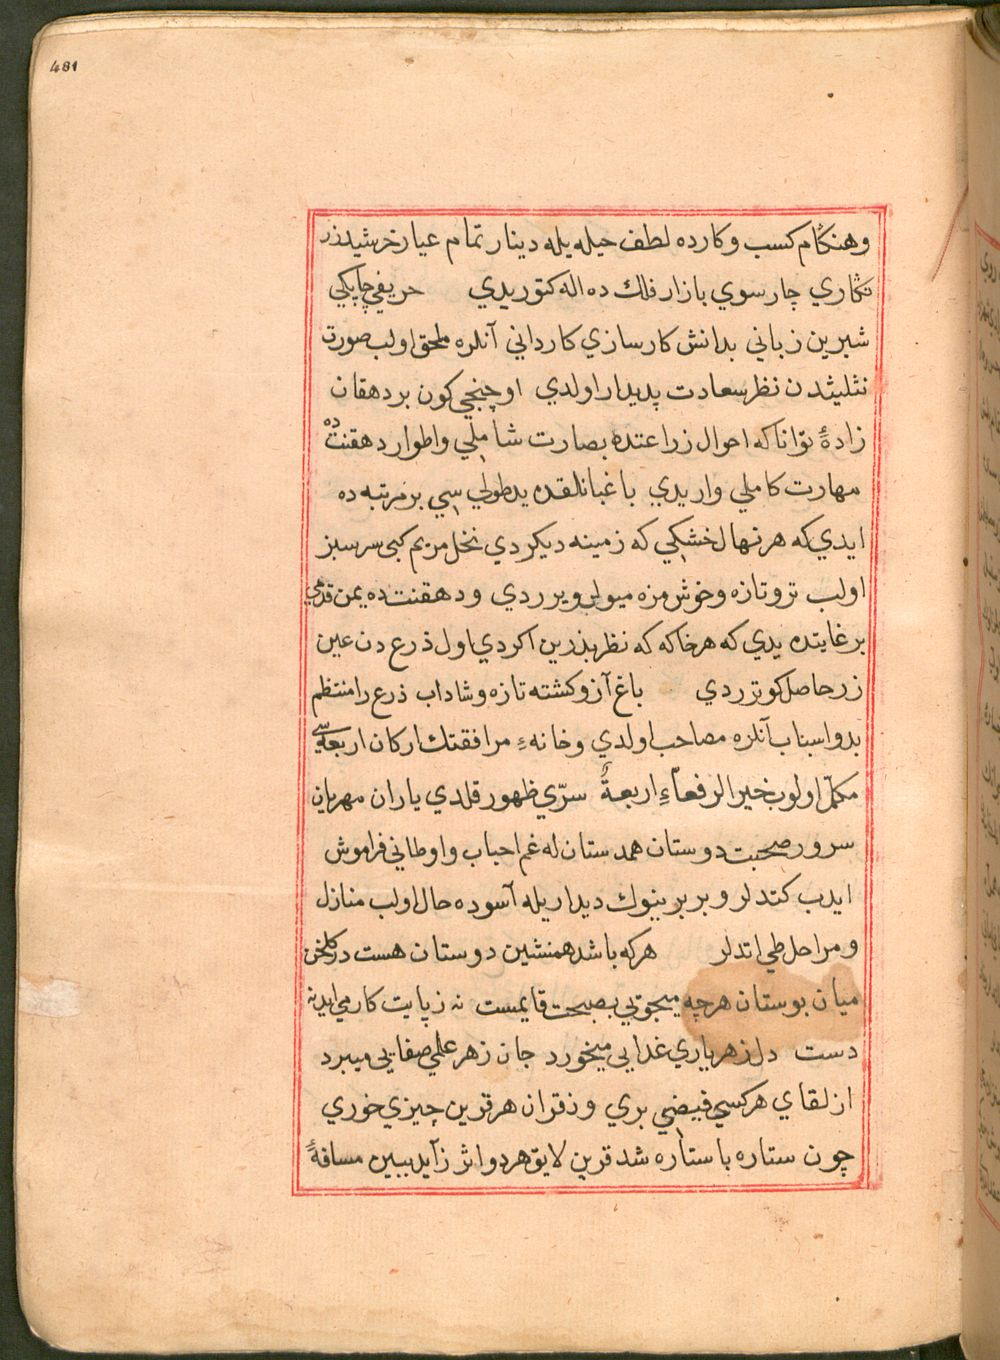 481
وهنكام كسب وكارده لطف حيله يله دينار تمام عيار خرشيد زر
نكاري چار سوي بازار فلك ده اله كتوريدي حريفي چاپكي
شيرين زباني بدانش كارسازي كارداني آنلره ملحق اولب صورت
تثليثدن نظر سعادت پديدار اولدي اوچنجي كون بر دهقان
زادۀ توانا كه احوال زراعتده بصارت شاملي واطوار دهقنت ده
مهارت كاملي واريدي باغبانلقده يد طولي سي بر مرتبه ده
ايدي كه هر نهال خشكي كه زمينه ديكردي نخل مريم كبي سرسبز
اولب تر وتازه وخوش مزه ميولر ويرردي ودهقنت ده يمن قدمي
بر غايتده يدي كه هر خاكه كه نظر بذرين اكردي اول ذرع دن عين
زر حاصل كوتررردي باغ آزو كشته تازه وشاداب ذرع را منتظم
بدو اسباب آنلره مصاحب اولدي وخانهء مرافقتك اركان اربعه سي
مكمل اولوب خير الرفعاء اربعةٌ سرّي ظهور قلدي ياران مهربان
سرور صحبت دوستان همدستان له غم احباب واوطاني فراموش
ايدب كتدلر وبر برينوك ديداريله آسوده حال اولب منازل
ومراحل طي اتدلر هركه باشد همنشين دوستان هست در كلخن
ميان بوستان هرچه ميجوئي بصحبت قايمست نه زپايت كار مي ايد نه
دست دل زهر ياري غدايي ميخورد جان زهر علمي صفايي ميبرد
از لقاي هر كسي فيضي بري وز قران هر قرين چيزي خوري
چون ستاره با ستاره شد قرين لايق هردو اثر زآيد ببين مسافهٔ